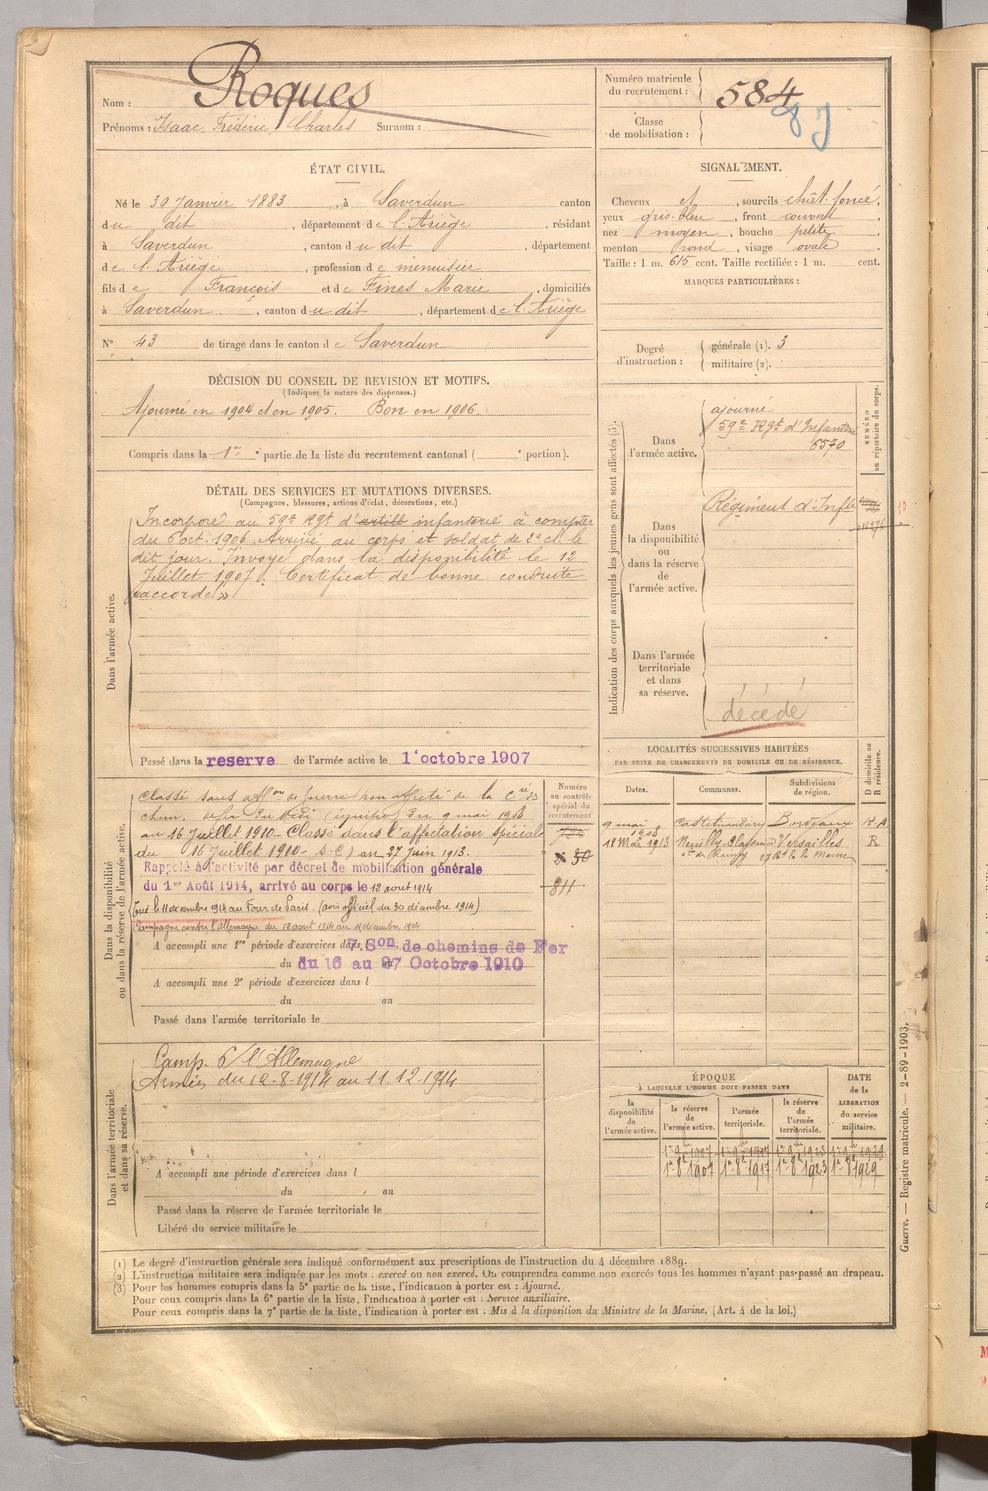 Nom : Roques
Prénoms : Isaac, Frédéric, Charles Surnom :
Numéro matricule du recrutement : 584
Classe de mobilisation :
ÉTAT CIVIL.
Né le 30 Janvier 1883, à Saverdun canton
du dit, département de l'Ariège, résidant
à Saverdun, canton du dit, département
de l'Ariège, profession de menuisier
fils de François et de Fines Marie, domiciliés
à Saverdun, canton du dit, département de l'Ariège
N° 43 de tirage dans le canton de Saverdun
SIGNALEMENT.
Cheveux et, sourcils chât. foncé,
yeux gris-bleu, front couvert,
nez moyen, bouche petite,
menton rond, visage ovale
Taille : 1 m. 615 cent. Taille rectifiée : 1 m. cent.
MARQUES PARTICULIÈRES :
Degré d'instruction : générale (1). 3
militaire (2).
DÉCISION DU CONSEIL DE REVISION ET MOTIFS.
(Indiquer la nature des dispenses.)
Ajourné en 1904 et en 1905. Bon en 1906.
Compris dans la 1re partie de la liste du recrutement cantonal ( e portion).
DÉTAIL DES SERVICES ET MUTATIONS DIVERSES.
(Campagnes, blessures, actions d'éclat, décorations, etc.)
Dans l'armée active.
Incorporé au 59e Rgt d'artill infanterie à compter
du 6 oct. 1906. Arrivé au corps et soldat de 2e cl. le
dit jour. Envoyé dans la disponibilité le 12
Juillet 1907. Certificat de bonne conduite
"accordé"
Passé dans la reserve de l'armée active le 1 octobre 1907
Indication des corps auxquels les jeunes gens sont affectés (3).
NUMÉRO au répertoire du corps.
Dans l'armée active.
ajourné
59e Rgt d'Infanterie
6570
Dans la disponibilité ou dans la réserve de l'armée active.
Régiment d'Inftie
Dans l'armée territoriale et dans sa réserve.
décédé
Dans la disponibilité ou dans la réserve de l'armée active.
Numéro au contrôle spécial du recrutement
Classé sans affon de guerre non affecté de la Cie des
chem. de fer du Midi (équipe) du 9 mai 1908
au 16 Juillet 1910 - Classé dans l'affectation spéciale
du 16 Juillet 1910 - S.C) au 27 Juin 1913.
Rappelé à l'activité par décret de mobilisation générale
du 1er Août 1914, arrivé au corps le 12 aout 1914
811
Tué le 11 décembre 1914 au Four de Paris. (avis officiel du 30 décembre 1914)
Campagne contre l'Allemagne du 12 aout 1914 au 11 décembre 1914
A accompli une 1re période d'exercices dans 7. Son de chemins de Fer
du 16 au 27 Octobre 1910
A accompli une 2e période d'exercices dans l
du au
Passé dans l'armée territoriale le
LOCALITÉS SUCCESSIVES HABITÉES
PAR SUITE DE CHANGEMENTS DE DOMICILE OU DE RÉSIDENCE.
Dates. Communes. Subdivisions de région. D domicile ou R résidence.
9 mai 1908 Castelnaudary Bordeaux
18 Mai 1913 Neuilly-Plaisance Versailles R
Dans l'armée territoriale et dans sa réserve.
Camp. c/ l'Allemagne
Armées du 12.8.1914 au 11.12.1914
A accompli une période d'exercices dans l
du au
Passé dans la réserve de l'armée territoriale le
Libéré du service militaire le
ÉPOQUE
À LAQUELLE L'HOMME DOIT PASSER DANS
DATE de la LIBÉRATION du service militaire.
la disponibilité de l'armée active. la réserve de l'armée active. l'armée territoriale. la réserve de l'armée territoriale.
1r 8e 1907 1r 8e 1917 1r 8e 1923 1r 8e 1929
(1) Le degré d'instruction générale sera indiqué conformément aux prescriptions de l'instruction du 4 décembre 1889.
(2) L'instruction militaire sera indiquée par les mots : exercé ou non exercé. On comprendra comme non exercés tous les hommes n'ayant pas passé au drapeau.
(3) Pour les hommes compris dans la 5e partie de la liste, l'indication à porter est : Ajourné.
Pour ceux compris dans la 6e partie de la liste, l'indication à porter est : Service auxiliaire.
Pour ceux compris dans la 7e partie de la liste, l'indication à porter est : Mis à la disposition du Ministre de la Marine. (Art. 4 de la loi.)
Guerre. — Registre matricule. — 2-89-1903.